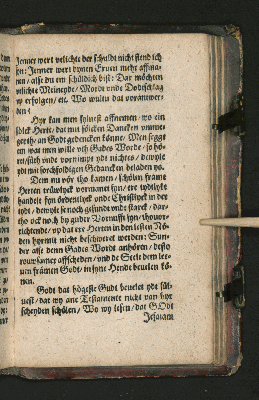 Jenner wert velichte der schuldt nicht stendich
syn: Jenner wert dynen Eruen nicht affstaan
/ alse du em schüldich bist: Dar möchten
velichte Meineyde / Mordt vnde Dodtschlag
vp erfolgen / etc. Wo wultu dat vorantwerden?
Hyr kan men spinest affnemen / wo ein
sölck Herte / dat mit sölcken Dancken vmme
geeth / an Godt gedencken könne. Men segge
em wat men wille vth Gades Worde / so höret
/ süth vnde vornimpt ydt nichtes / dewyle
ydt mit sorchfoldigen Gedancken beladen ys.
Dem nu vör tho kamen / schölen frame
Herten trüwlyck vormanet syn / ere tydtlyke
handele fyn ordentlyck vnde Christlyck in der
tydt / dewyle se noch gesundt vnde starck / darto
ock noch by guder Vornufft syn /
richtende / vp dat ere Herten in den lesten Nöden
hyrmit nicht beschweret werden: Sunder
alse denn Gades Wordt anhören / desto
rouwsamer affscheden / vnde de Seele dem leuen
framen Godt / in syne Hende beuelen können.
Godt dat högeste Gudt beuelet ydt sülvest
/ dat wy ane Testamente nicht van hyr
scheyden schölen / Wo wy lesen / dat GOdt
Jesaiam